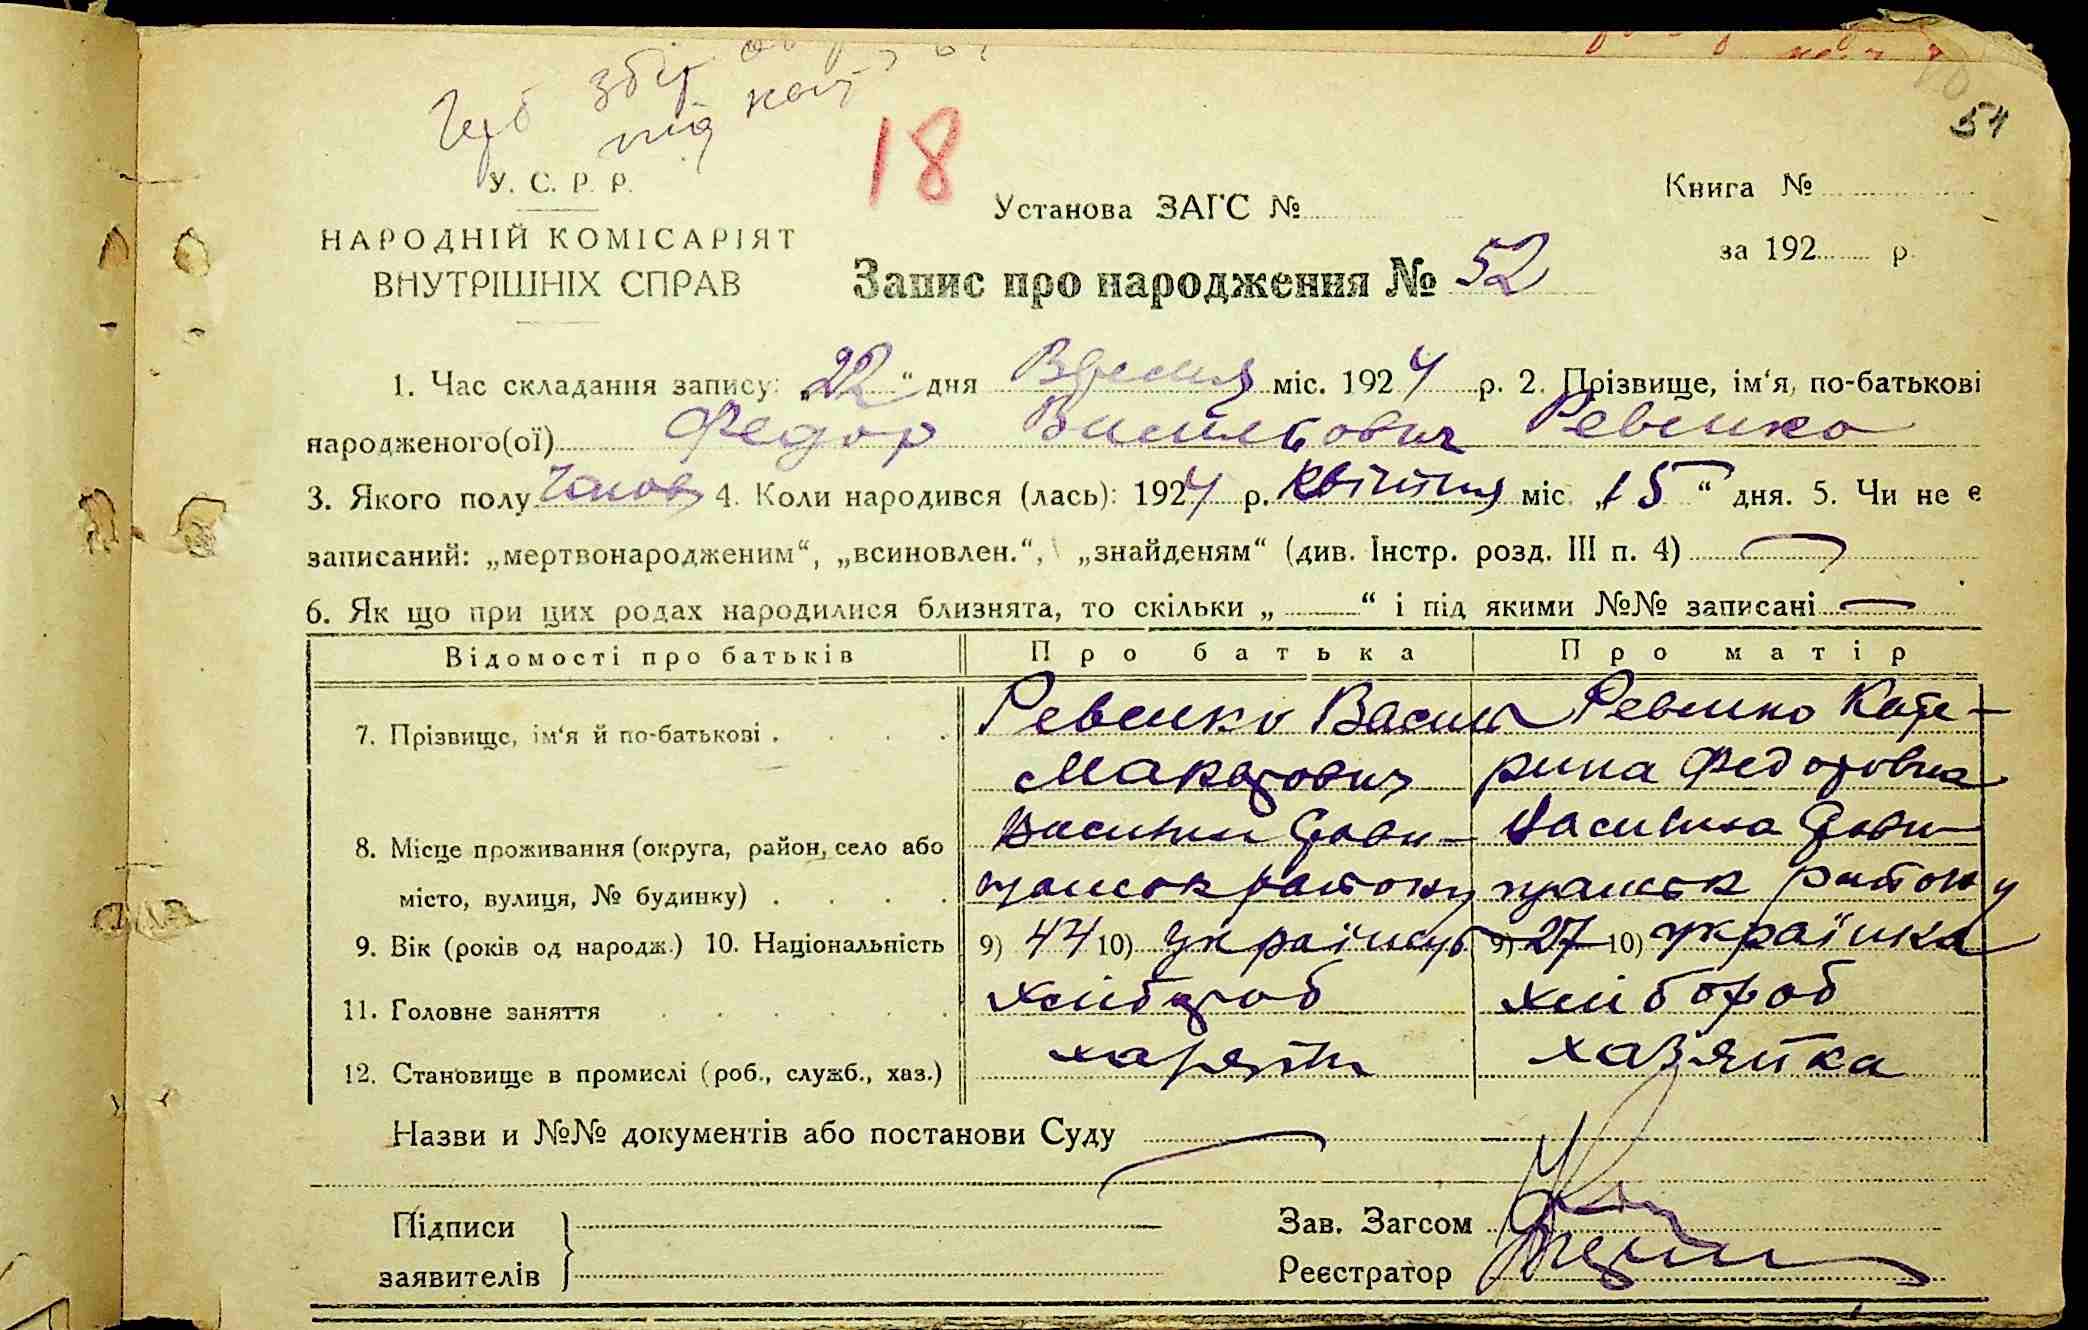 54
18
У. С. Р. Р.
Книга №
Установа ЗАГС №
НАРОДНІЙ КОМІСАРІЯТ
за 192 р.
ВНУТРІШНІХ СПРАВ
Запис про народження № 52
1. Час складання запису: „22“ дня Вресня міс. 1924 р. 2. Прізвище, ім‘я, по-батькові
народженого(ої) Федор Васильович Ревенко
3. Якого полу 4. Коли народився (лась): 1924 р. Квітня міс. „15“ дня. 5. Чи не є
записаний: „мертвонародженим“, „всиновлен.“, „знайденям“ (див. Інстр. розд. III п. 4)
6. Як що при цих родах народилися близнята, то скільки „ —— “ і під якими №№ записані —
Відомості про батьків Про батька Про матір
7. Прізвище, ім‘я й по-батькові . . . . Ревенко Василь Ревенко Кате-
Макарович рина Федоровна
8. Місце проживання (округа, район, село або
місто, вулиця, № будинку) . . . . району району
9. Вік (років од народж.) 10. Національність 9) 44 10) 9) 27 10) українка
11. Головне заняття . . . . . хлібороб хлібороб
12. Становище в промислі (роб., служб., хаз.) хазяйка
Назви и №№ документів або постанови Суду
Підписи
заявителів
Зав. Загсом
Реєстратор